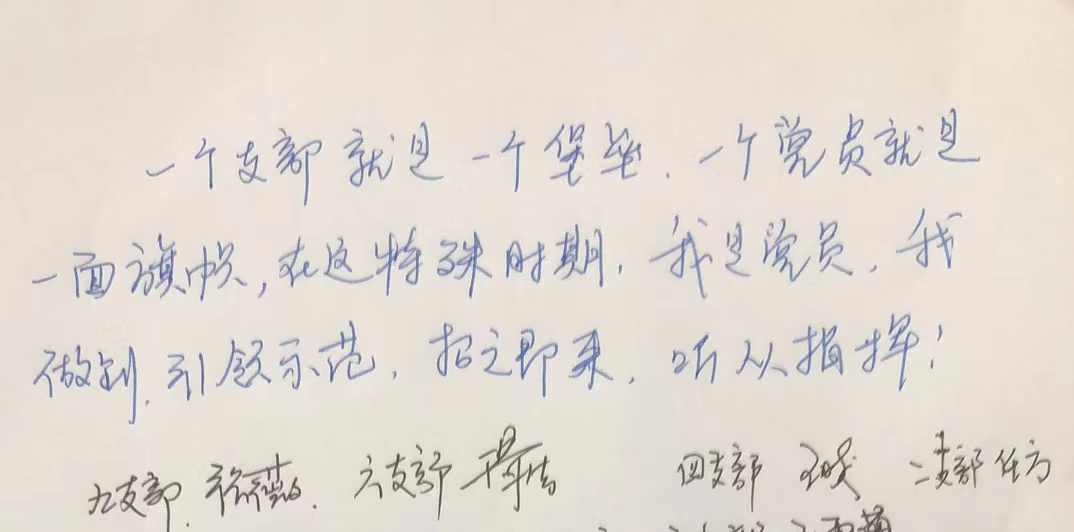 一个支部就是一个堡垒.一个党员就是
一面旗帜,在这特殊时期.我是党员.我
做到.引领示范.招之即来.听从指挥!
九支部.徐薇.六支部 四支部 二支部任方